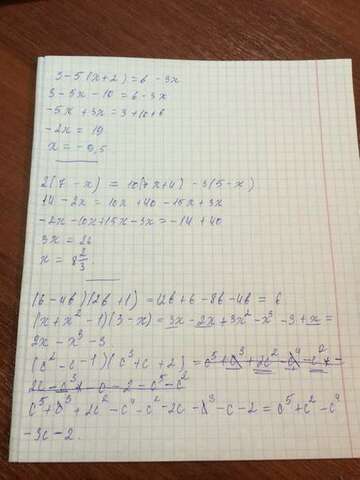 3-5(x+2)=6-3x
3-5x-10=6-3x
-5x+3x=3+10+6
-2x=19
x=-9,5
2(7-x)=10(x+4)-3(5-x)
14-2x=10x+40-15x+3x
-2x-10x+15x-3x=-14+40
3x=26
x=8 2/3
(6-4b)(2b+1)=12b+6-8b-4b=6
(x+x²-1)(3-x)=3x-2x+3x²-x³-3+x=
2x-x³-3.
(c²-c-1)(c³+c+2)=
c⁵+c³+2c²-c⁴-c²-2c-c³-c-2=c⁵+c²-c⁴
-3c-2.